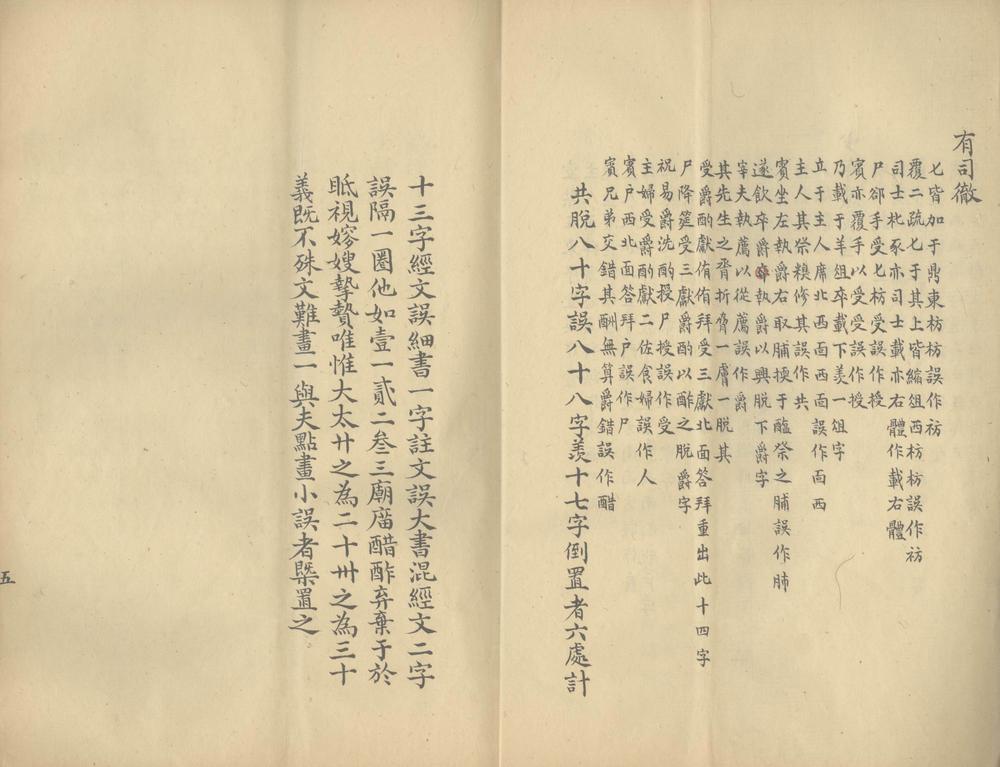 有司徹
匕皆加于鼎東枋枋誤作祊
覆二疏匕于其上皆縮俎西枋枋誤作祊
司士朼豕亦司士載亦右體作載右體
尸郤手受匕枋受誤作授
賓亦覆手以受受誤作授
乃載于羊俎卒載下羡一俎字
立于主人席北西面西面誤作面西
主人其祭糗修其誤作共
賓坐左執爵右取脯㨎于醢祭之脯誤作肺
遂飲卒爵執爵以興脫下爵字
宰夫執薦以從薦誤作爵
其先生之脀折脅一膚一脫其
受爵酌獻侑侑拜受三獻北面答拜重出此十四字
尸降筵受三獻爵酌以酢之脫爵字
祝易爵洗酌授尸授誤作受
主婦受爵酌獻二佐食婦誤作人
賓户西北面答拜户誤作尸
賓兄弟交錯其酬無算爵錯誤作醋
共脫八十字誤八十八字羡十七字倒置者六處計
十三字經文誤細書一字註文誤大書混經文二字
誤隔一圈他如壹一貳二叁三廟庿醋酢弃棄于於
眡視嫆嫂摯贄唯惟大太廾之為二十卅之為三十
義既不殊文難畫一與夫點畫小誤者槩置之
五